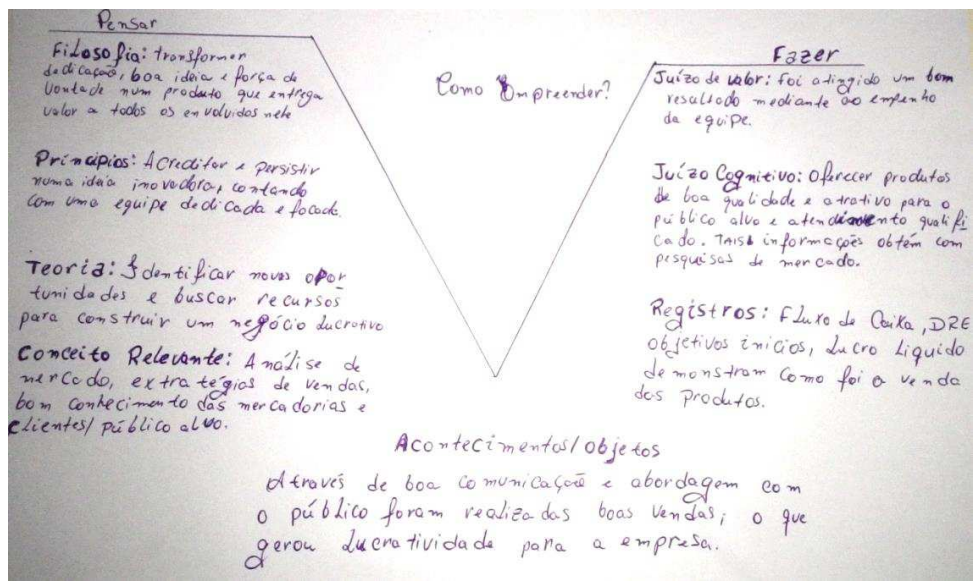 Pensar
Filosofia: transformer
dedicação, boa ideia e força de
vontade num produto que entrega
valor a todos os envolvidos nele
Princípios: Acreditar e persistir
numa ideia inovadora, contando
com uma equipe dedicada e focada.
Teoria: Identificar novas opor
tunidades e buscar recursos
para construir um negócio lucrativo
Conceito Relevante: Análise de
mercado, extratégias de vendas,
bom conhecimento das mercadorias e
clientes/ público alvo.
Como Empreender?
Fazer
Juízo de valor: Foi atingido um bom
resultado mediante ao empenho
da equipe.
Juízo Cognitivo: Oferecer produtos
de boa qualidade e atrativo para o
público alvo e atendimento qualifi
cado. TAIS informações obtém com
pesquisas de mercado.
Registros: Fluxo de Caixa, DRE
objetivos inícios, Lucro Liquido
demonstram como foi a venda
dos Produtos.
Acontecimentos/objetos
Através de boa comunicação e abordagem com
o público foram realizadas boas vendas, o que
gerou lucratividade para a empresa.